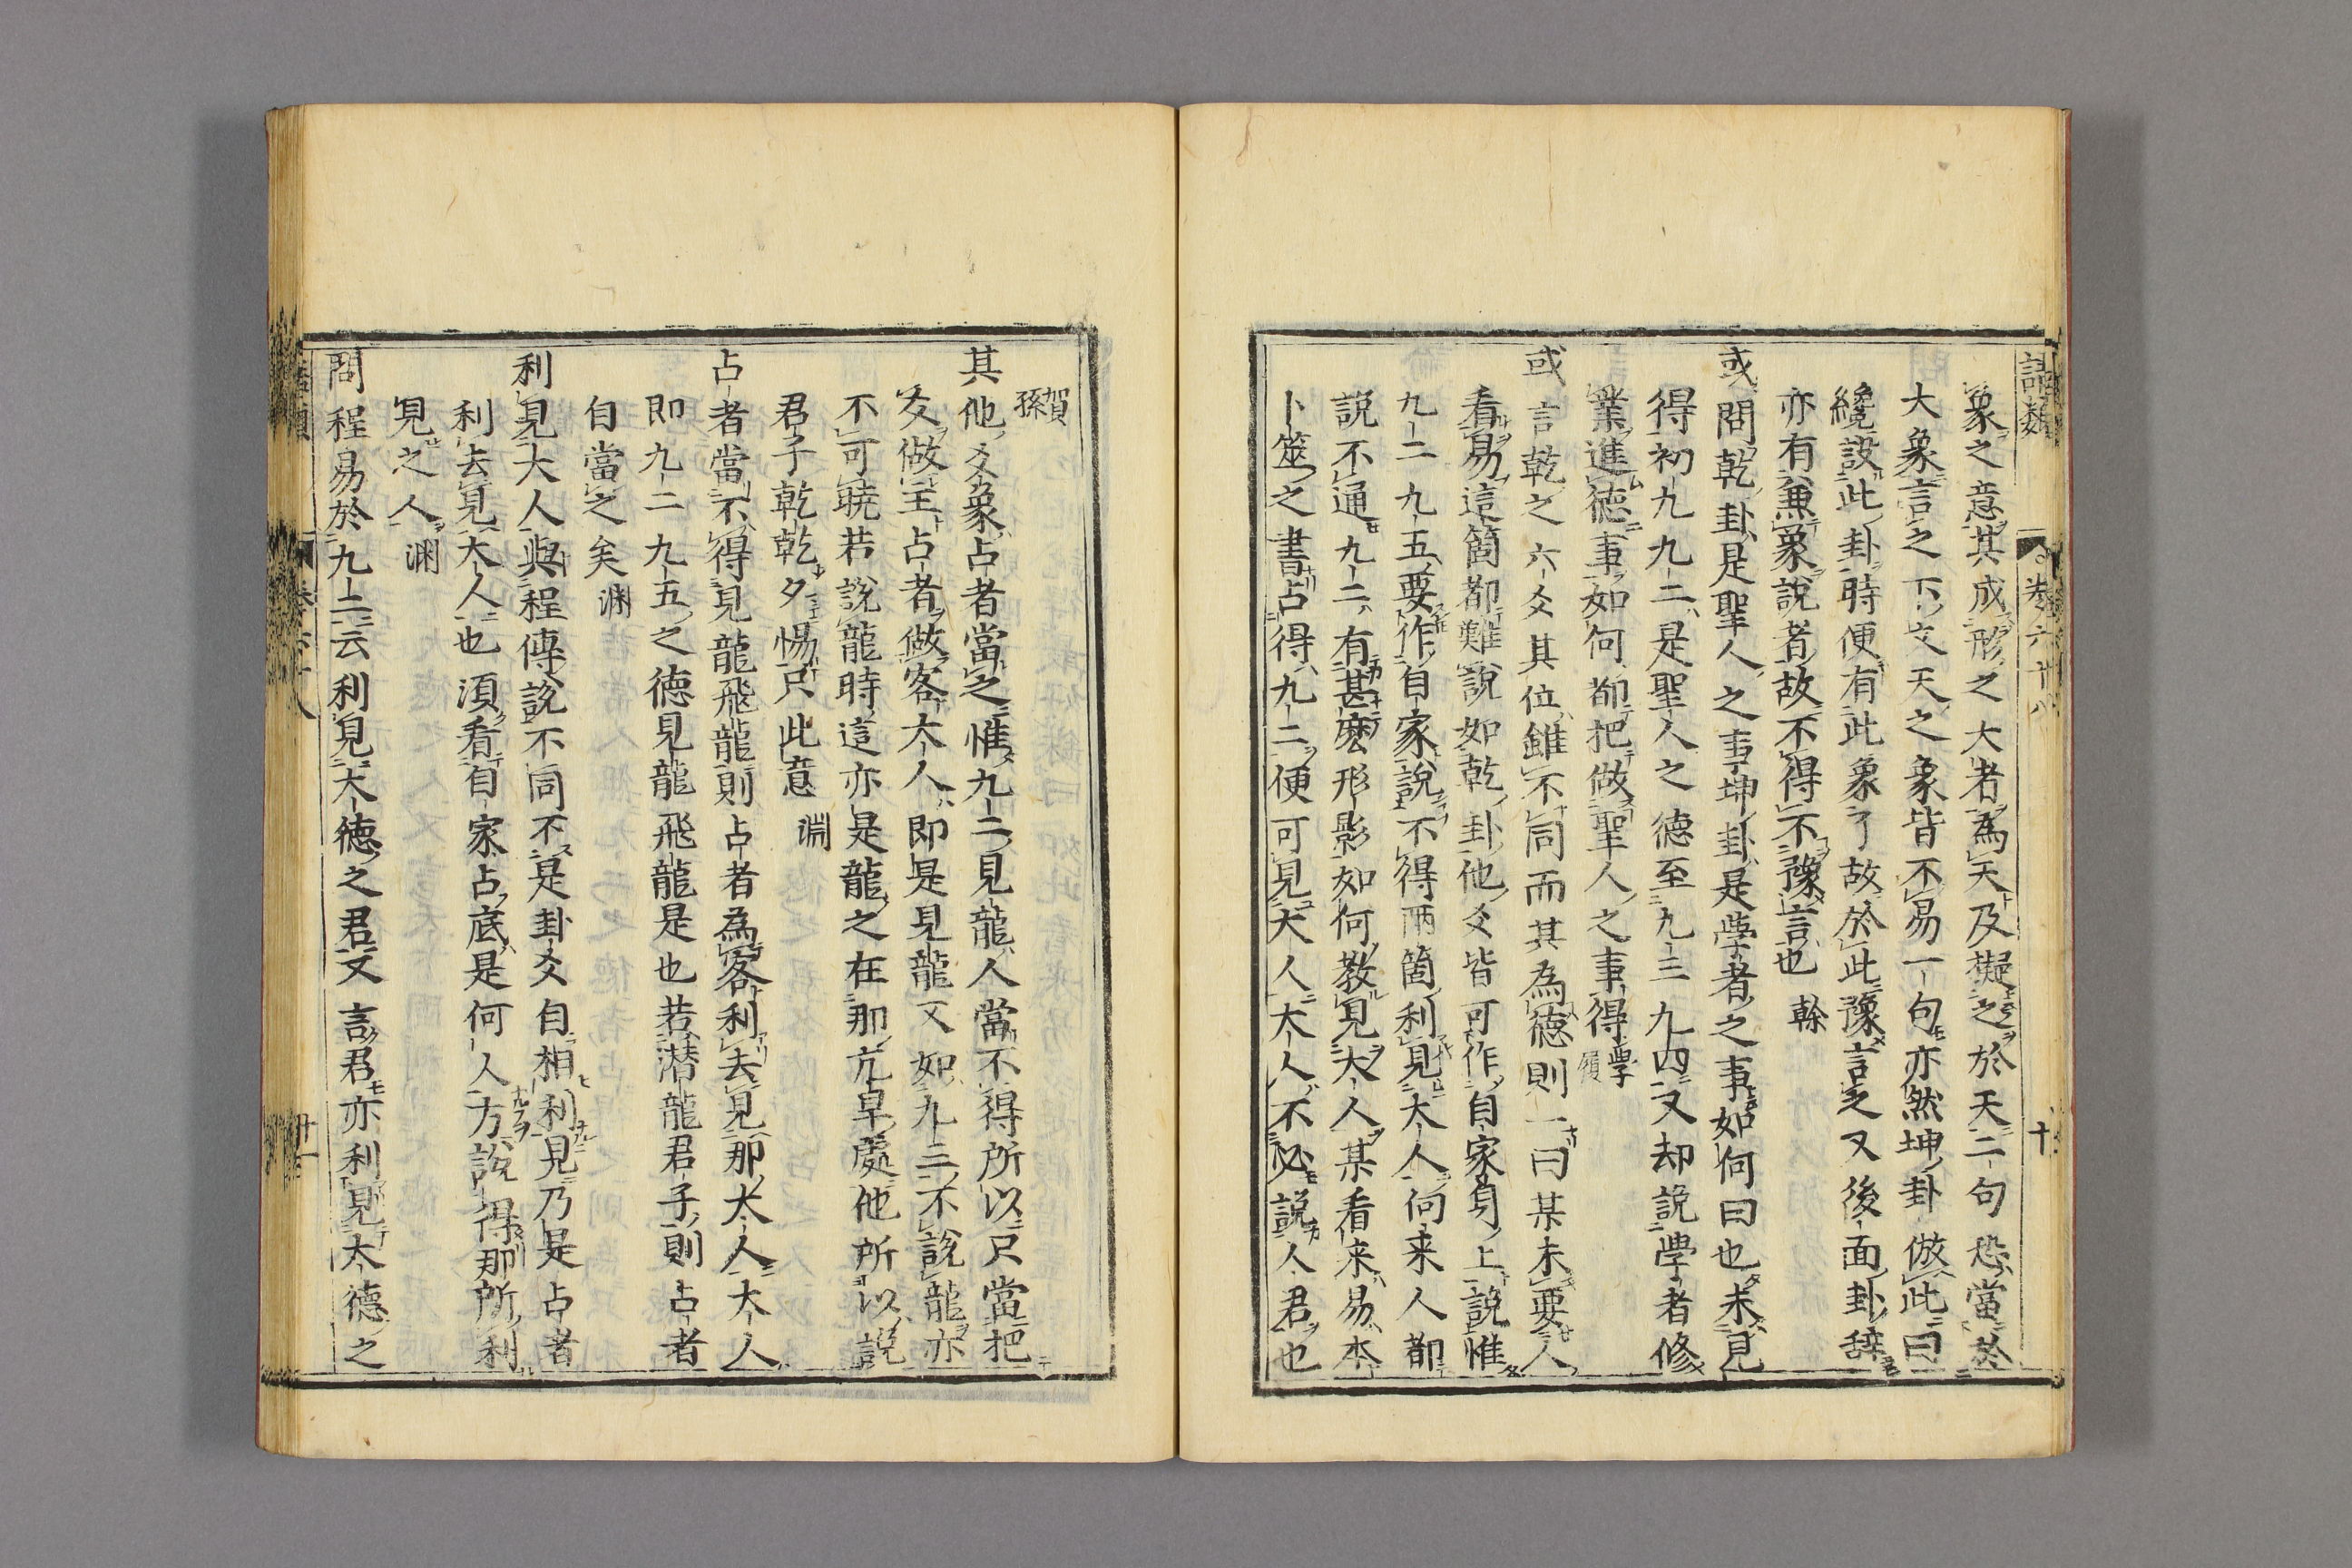 語類 卷六十八 十
象之意其成形之大者為天及擬之於天二句恐當於
大象言之下文天之象皆不易一句亦然坤卦倣此曰
纔設此卦時便有此象了故於此豫言之又後面卦辞
亦有兼象說者故不得不豫言也 榦
或問乾卦是聖人之事坤卦是學者之事如何曰也未見
得初九九二是聖人之德至九三九四又却說學者修
業進德事如何都把做聖人之事得 學履
或言乾之六爻其位雖不同而其為德則一曰某未要人
看易這箇都難說如乾卦他爻皆可作自家身上說惟
九二九五要作自家說不得兩箇利見大人向来人都
說不通九二有甚麽形影如何教見大人某看来易本
卜筮之書占得九二便可見大人大人不必說人君也
賀孫
其他爻象占者當之惟九二見龍人當不得所以只當把
爻做主占者做客大人即是見龍又如九三不說龍亦
不可曉若說龍時這亦是龍之在那亢旱處他所以說
君子乾乾夕惕只此意 淵
占者當不得見龍飛龍則占者為客利去見那大人大人
即九二九五之德見龍飛龍是也若潜龍君子則占者
自當之矣 淵
利見大人與程傳說不同不是卦爻自相利見乃是占者
利去見大人也須看自家占底是何人方說得那所利
見之人 淵
問程易於九二云利見大德之君又言君亦利見大德之
語類 卷六十八 十一